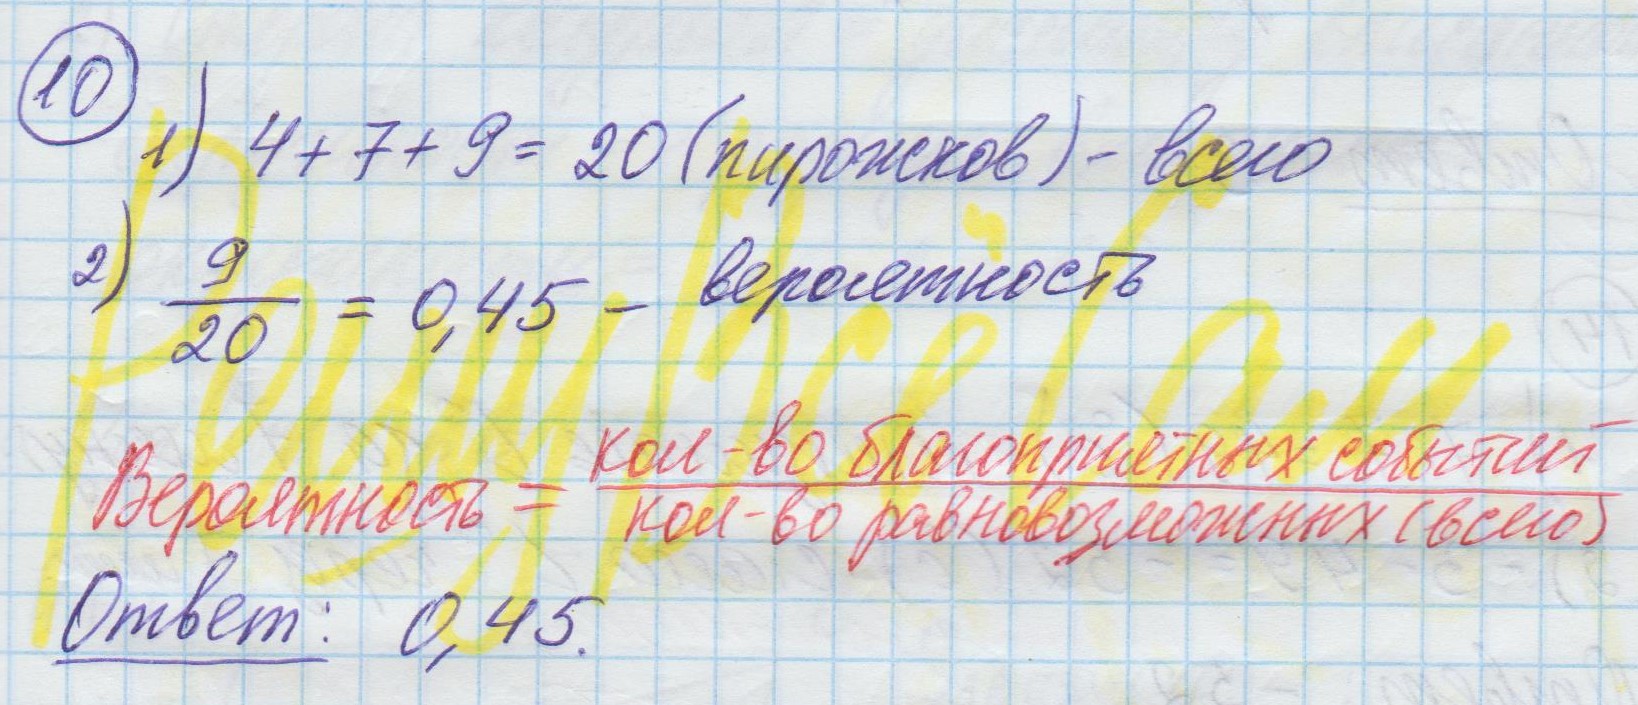 10
1) 4+7+9=20 (пирожков) – всего
2) 9/20 = 0,45 – вероятность
Вероятность = кол-во благоприятных событий
кол-во равновозможных (всего)
Ответ: 0,45.
РешуВсеСам